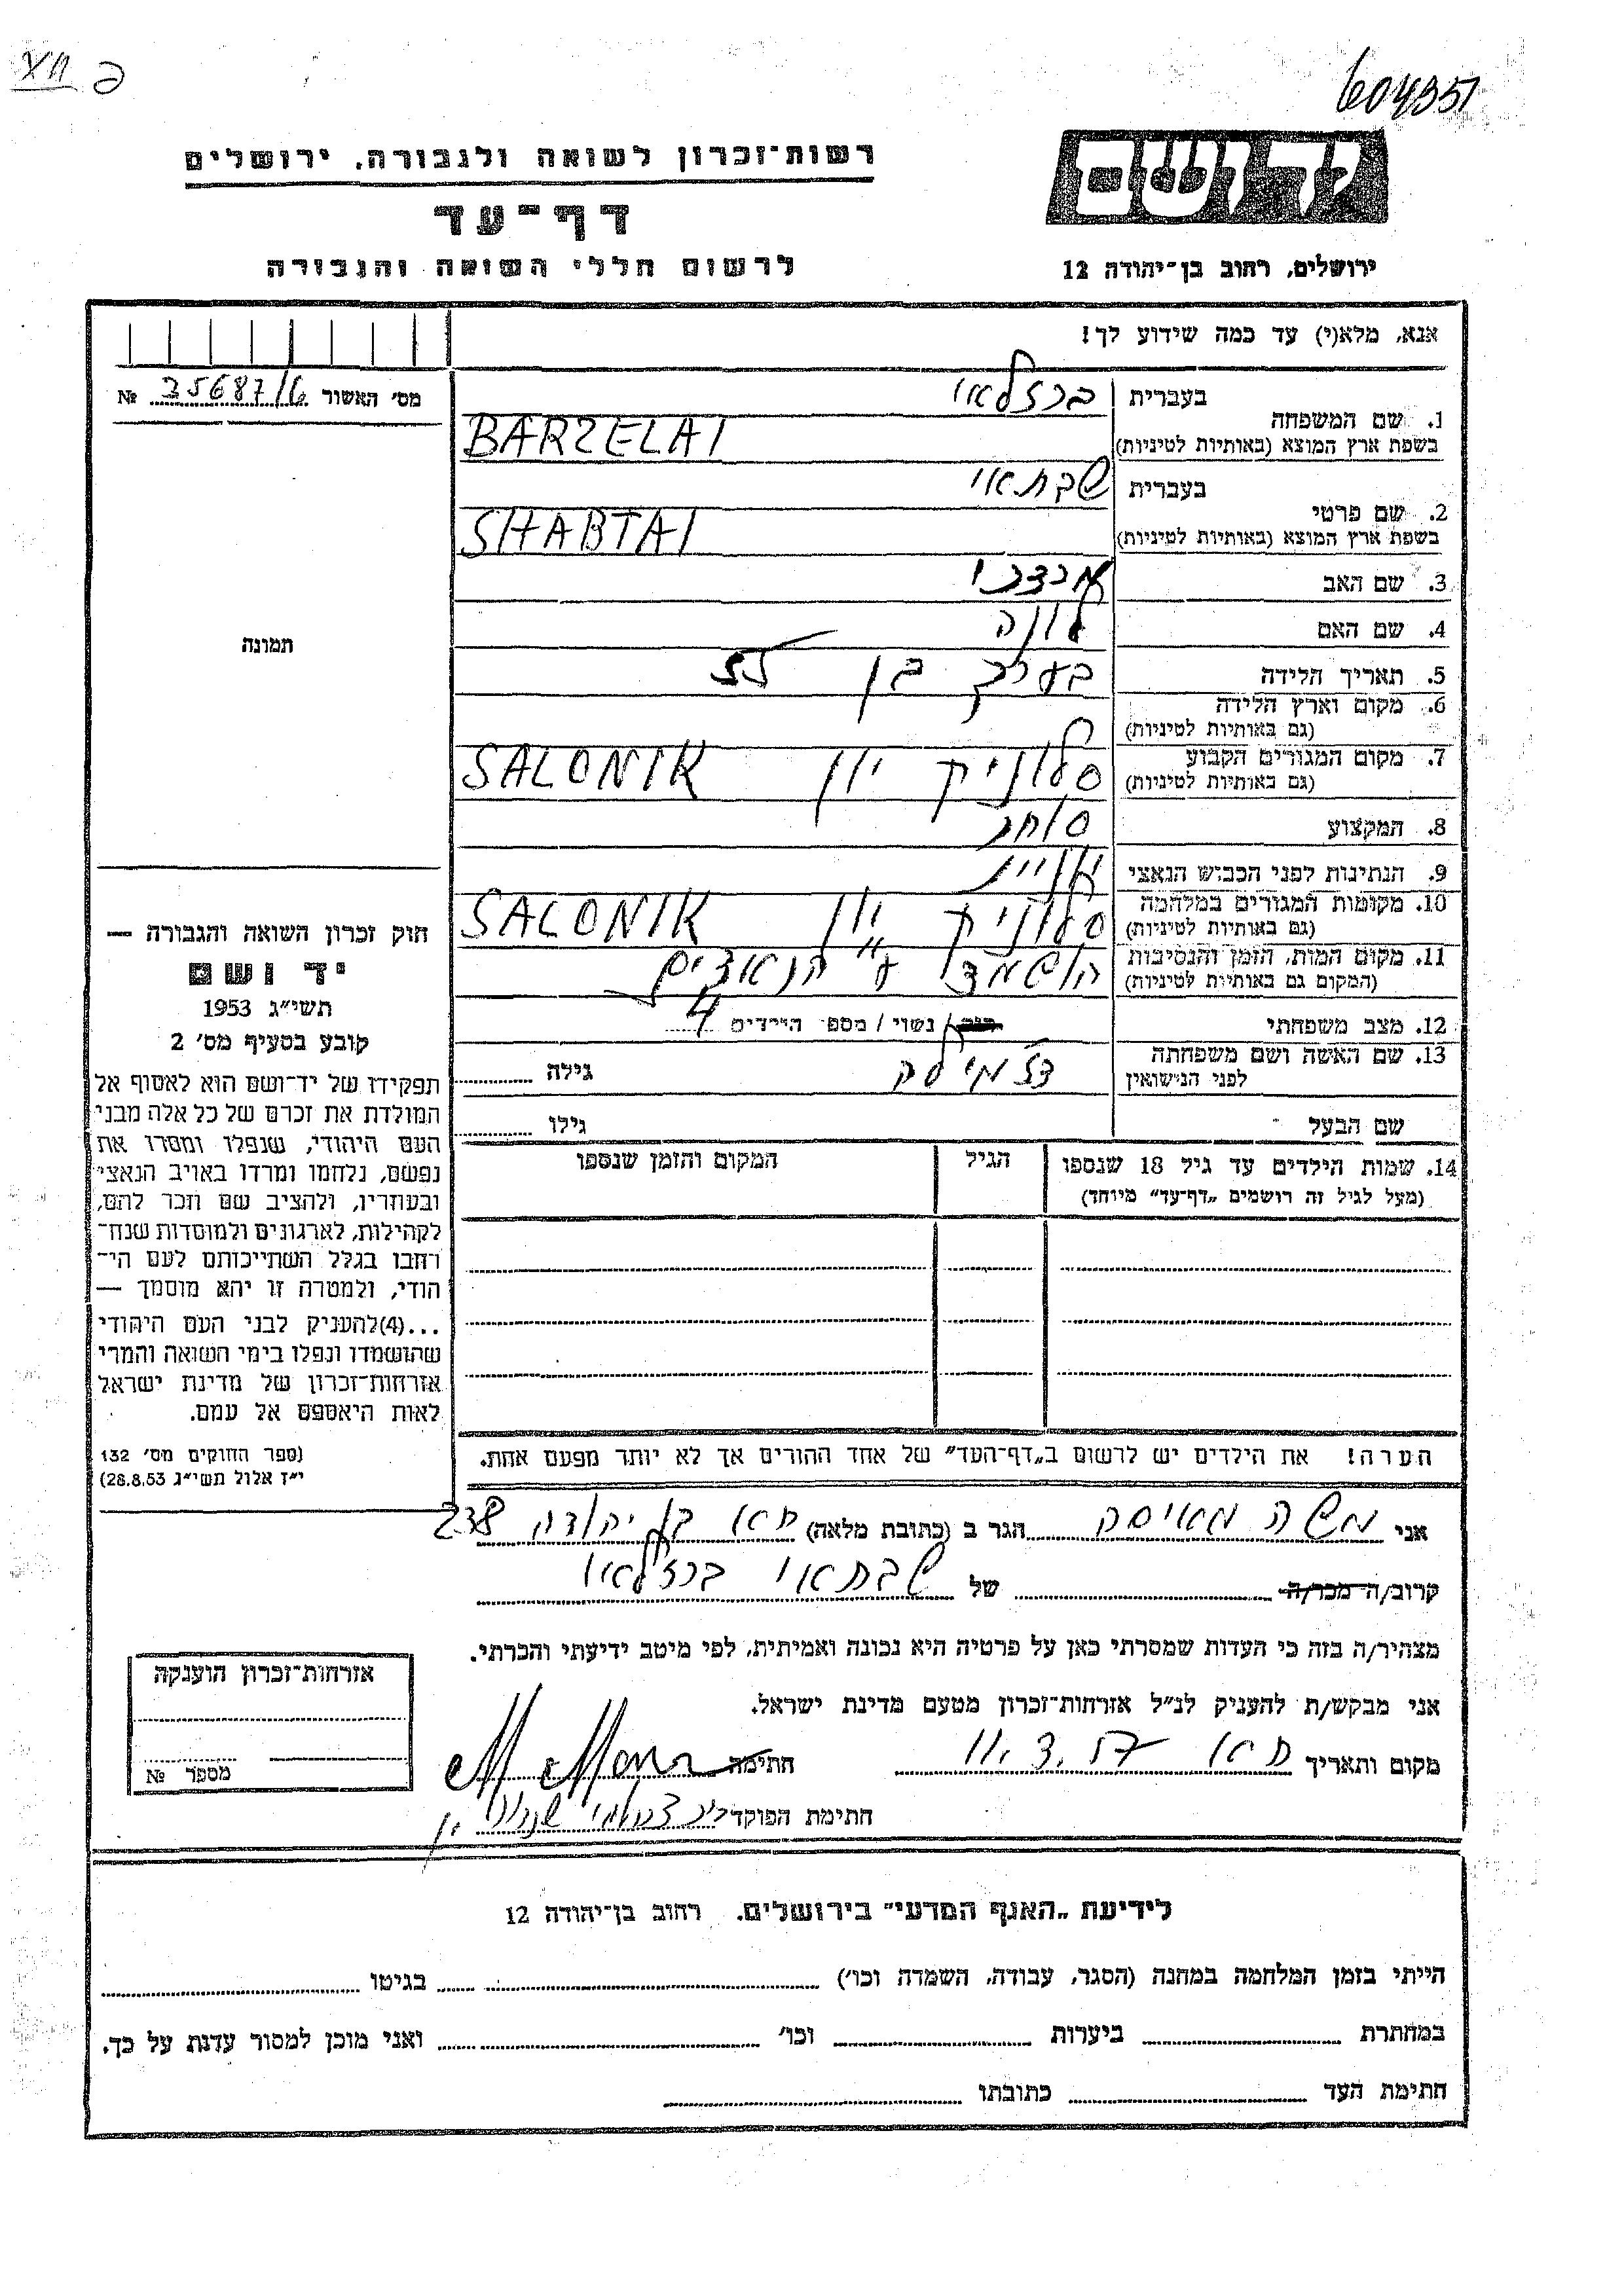 604351
רשות-זכרון לשואה ולגבורה, ירושלים
יד ושם
דף-עד
לרשום חללי השואה והגבורה
ירושלים, רחוב בן-יהודה 12
אנא, מלא(י) עד כמה שידוע לך!
מס' האשור 35687/6 №
1. שם המשפחה
בעברית ברזלאי
בשפת ארץ המוצא (באותיות לטיניות) BARZELAI
2. שם פרטי
בעברית שבתאי
בשפת ארץ המוצא (באותיות לטיניות) SHABTAI
3. שם האב מרדכי
4. שם האם לונה
5. תאריך הלידה בערך בן 55
6. מקום וארץ הלידה
(גם באותיות לטיניות)
7. מקום המגורים הקבוע
(גם באותיות לטיניות) סלוניק יון SALONIK
8. המקצוע סוחר
9. הנתינות לפני הכבוש הנאצי
10. מקומות המגורים במלחמה
(גם באותיות לטיניות) סלוניק יון SALONIK
11. מקום המות, הזמן והנסיבות
(המקום גם באותיות לטיניות) הושמד ע"י הנאצים
12. מצב משפחתי רווק / נשוי / מספר הילדים 4
13. שם האשה ושם משפחתה
לפני הנישואין גילה
שם הבעל גילו
14. שמות הילדים עד גיל 18 שנספו
(מעל לגיל זה רושמים „דף-עד" מיוחד)
הגיל
המקום והזמן שנספו
הערה! את הילדים יש לרשום ב„דף-העד" של אחד ההורים אך לא יותר מפעם אחת.
תמונה
חוק זכרון השואה והגבורה —
יד ושם
תשי״ג 1953
קובע בסעיף מס' 2
תפקידו של יד-ושם הוא לאסוף אל
המולדת את זכרם של כל אלה מבני
העם היהודי, שנפלו ומסרו את
נפשם, נלחמו ומרדו באויב הנאצי
ובעוזריו, ולהציב שם וזכר להם,
לקהילות, לארגונים ולמוסדות שנח-
רחבו בגלל השתייכותם לעם הי-
הודי, ולמטרה זו יהא מוסמך —
...(4)להעניק לבני העם היהודי
שהושמדו ונפלו בימי השואה והמרי
אזרחות-זכרון של מדינת ישראל
לאות היאספם אל עמם.
(ספר החוקים מס' 132
י״ז אלול תשי״ג 28.8.53)
אני משה מאיסה הגר ב (כתובת מלאה) ת"א בן יהודה 238
קרוב/ה מכר/ה של שבתאי ברזלאי
מצהיר/ה בזה כי העדות שמסרתי כאן על פרטיה היא נכונה ואמיתית, לפי מיטב ידיעתי והכרתי.
אני מבקש/ת להעניק לנ״ל אזרחות-זכרון מטעם מדינת ישראל.
מקום ותאריך ת"א 11.3.57 חתימה
חתימת הפוקד
אזרחות-זכרון הוענקה
מספר №
לידיעת „האגף המדעי" בירושלים. רחוב בן-יהודה 12
הייתי בזמן המלחמה במחנה (הסגר, עבודה, השמדה וכו') בגיטו
במחתרת ביערות וכו' ואני מוכן למסור עדות על כך.
חתימת העד כתובתו